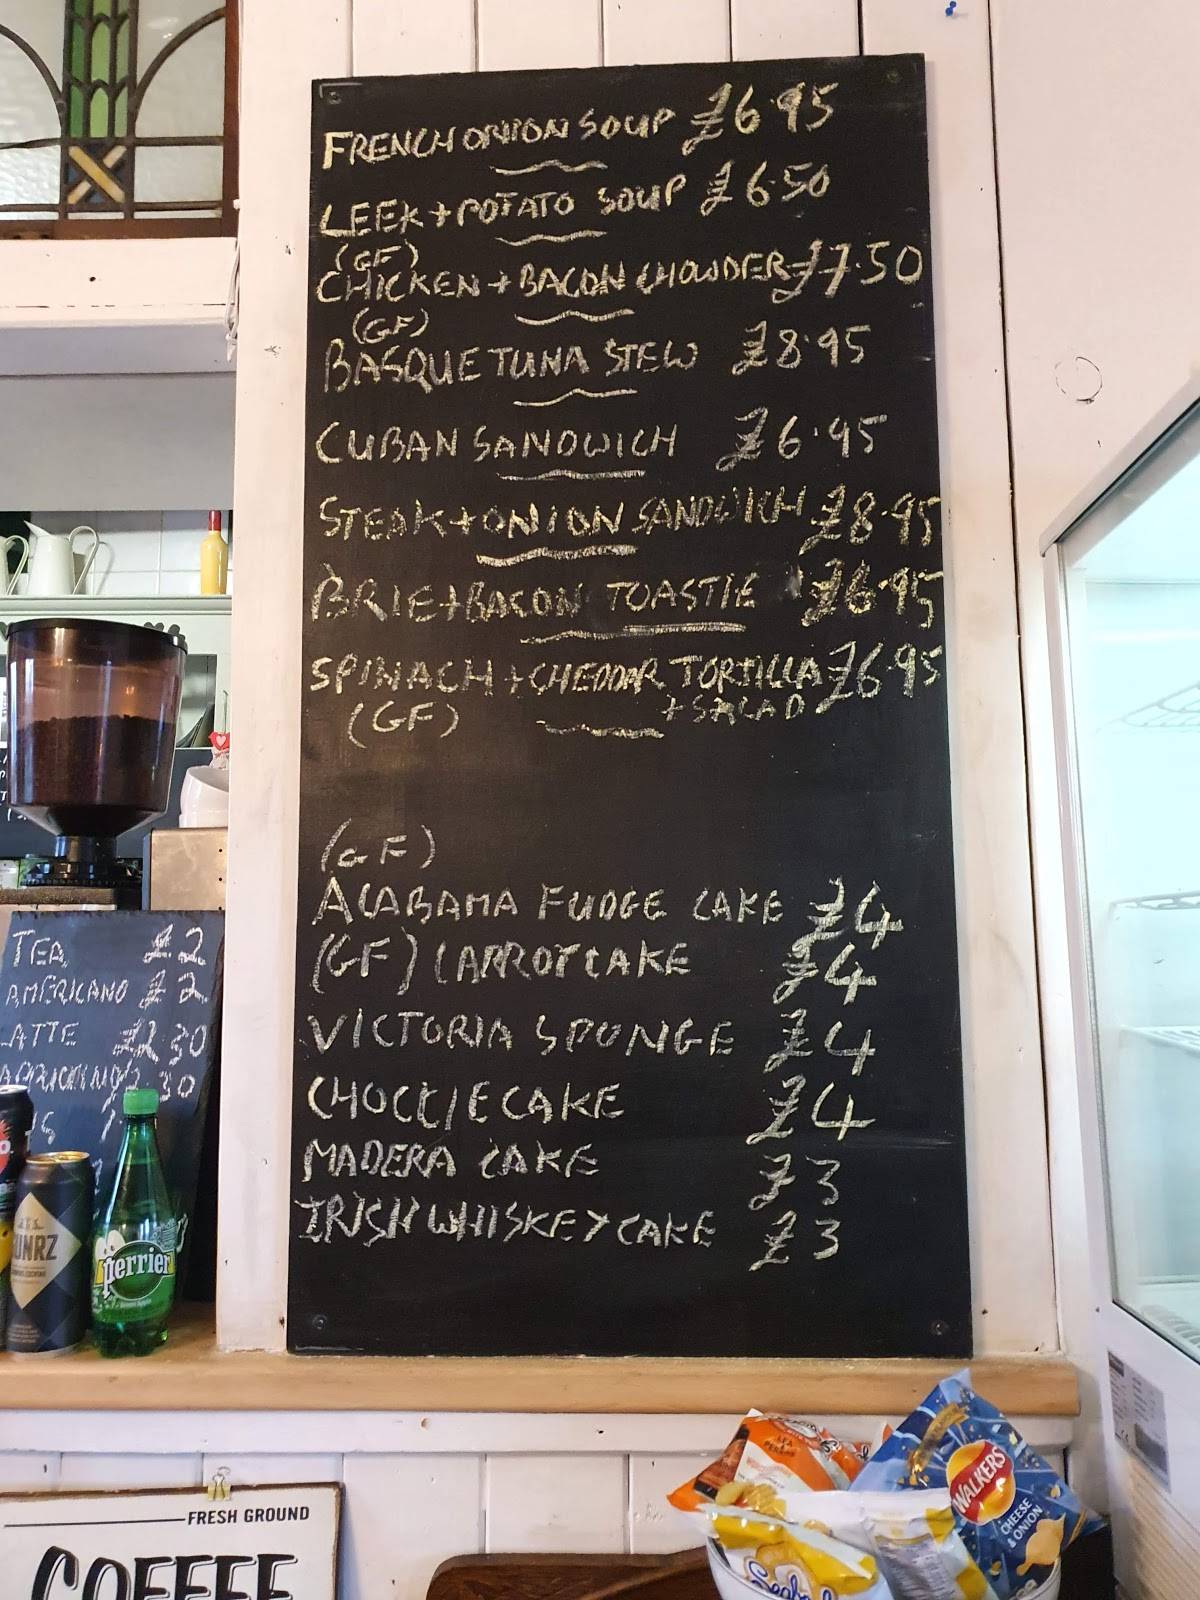 FRENCH ONION SOUP £6.95
LEEK + POTATO SOUP £6.50
(GF)
CHICKEN + BACON CHOWDER £7.50
(GF)
BASQUE TUNA STEW £8.95
CUBAN SANDWICH £6.95
STEAK + ONION SANDWICH £8.95
BRIE + BACON TOASTIE £6.95
SPINACH + CHEDDAR TORTILLA £6.95
+ SALAD
(GF)
(GF)
ALABAMA FUDGE CAKE £4
(GF) CARROT CAKE £4
VICTORIA SPONGE £4
CHOCCIE CAKE £4
MADERA CAKE £3
IRISH WHISKEY CAKE £3
TEA £2
AMERICANO £2
LATTE £2.30
perrier
FRESH GROUND
COFFEE
LEA
PERRINS
WALKERS
CHEESE
& ONION